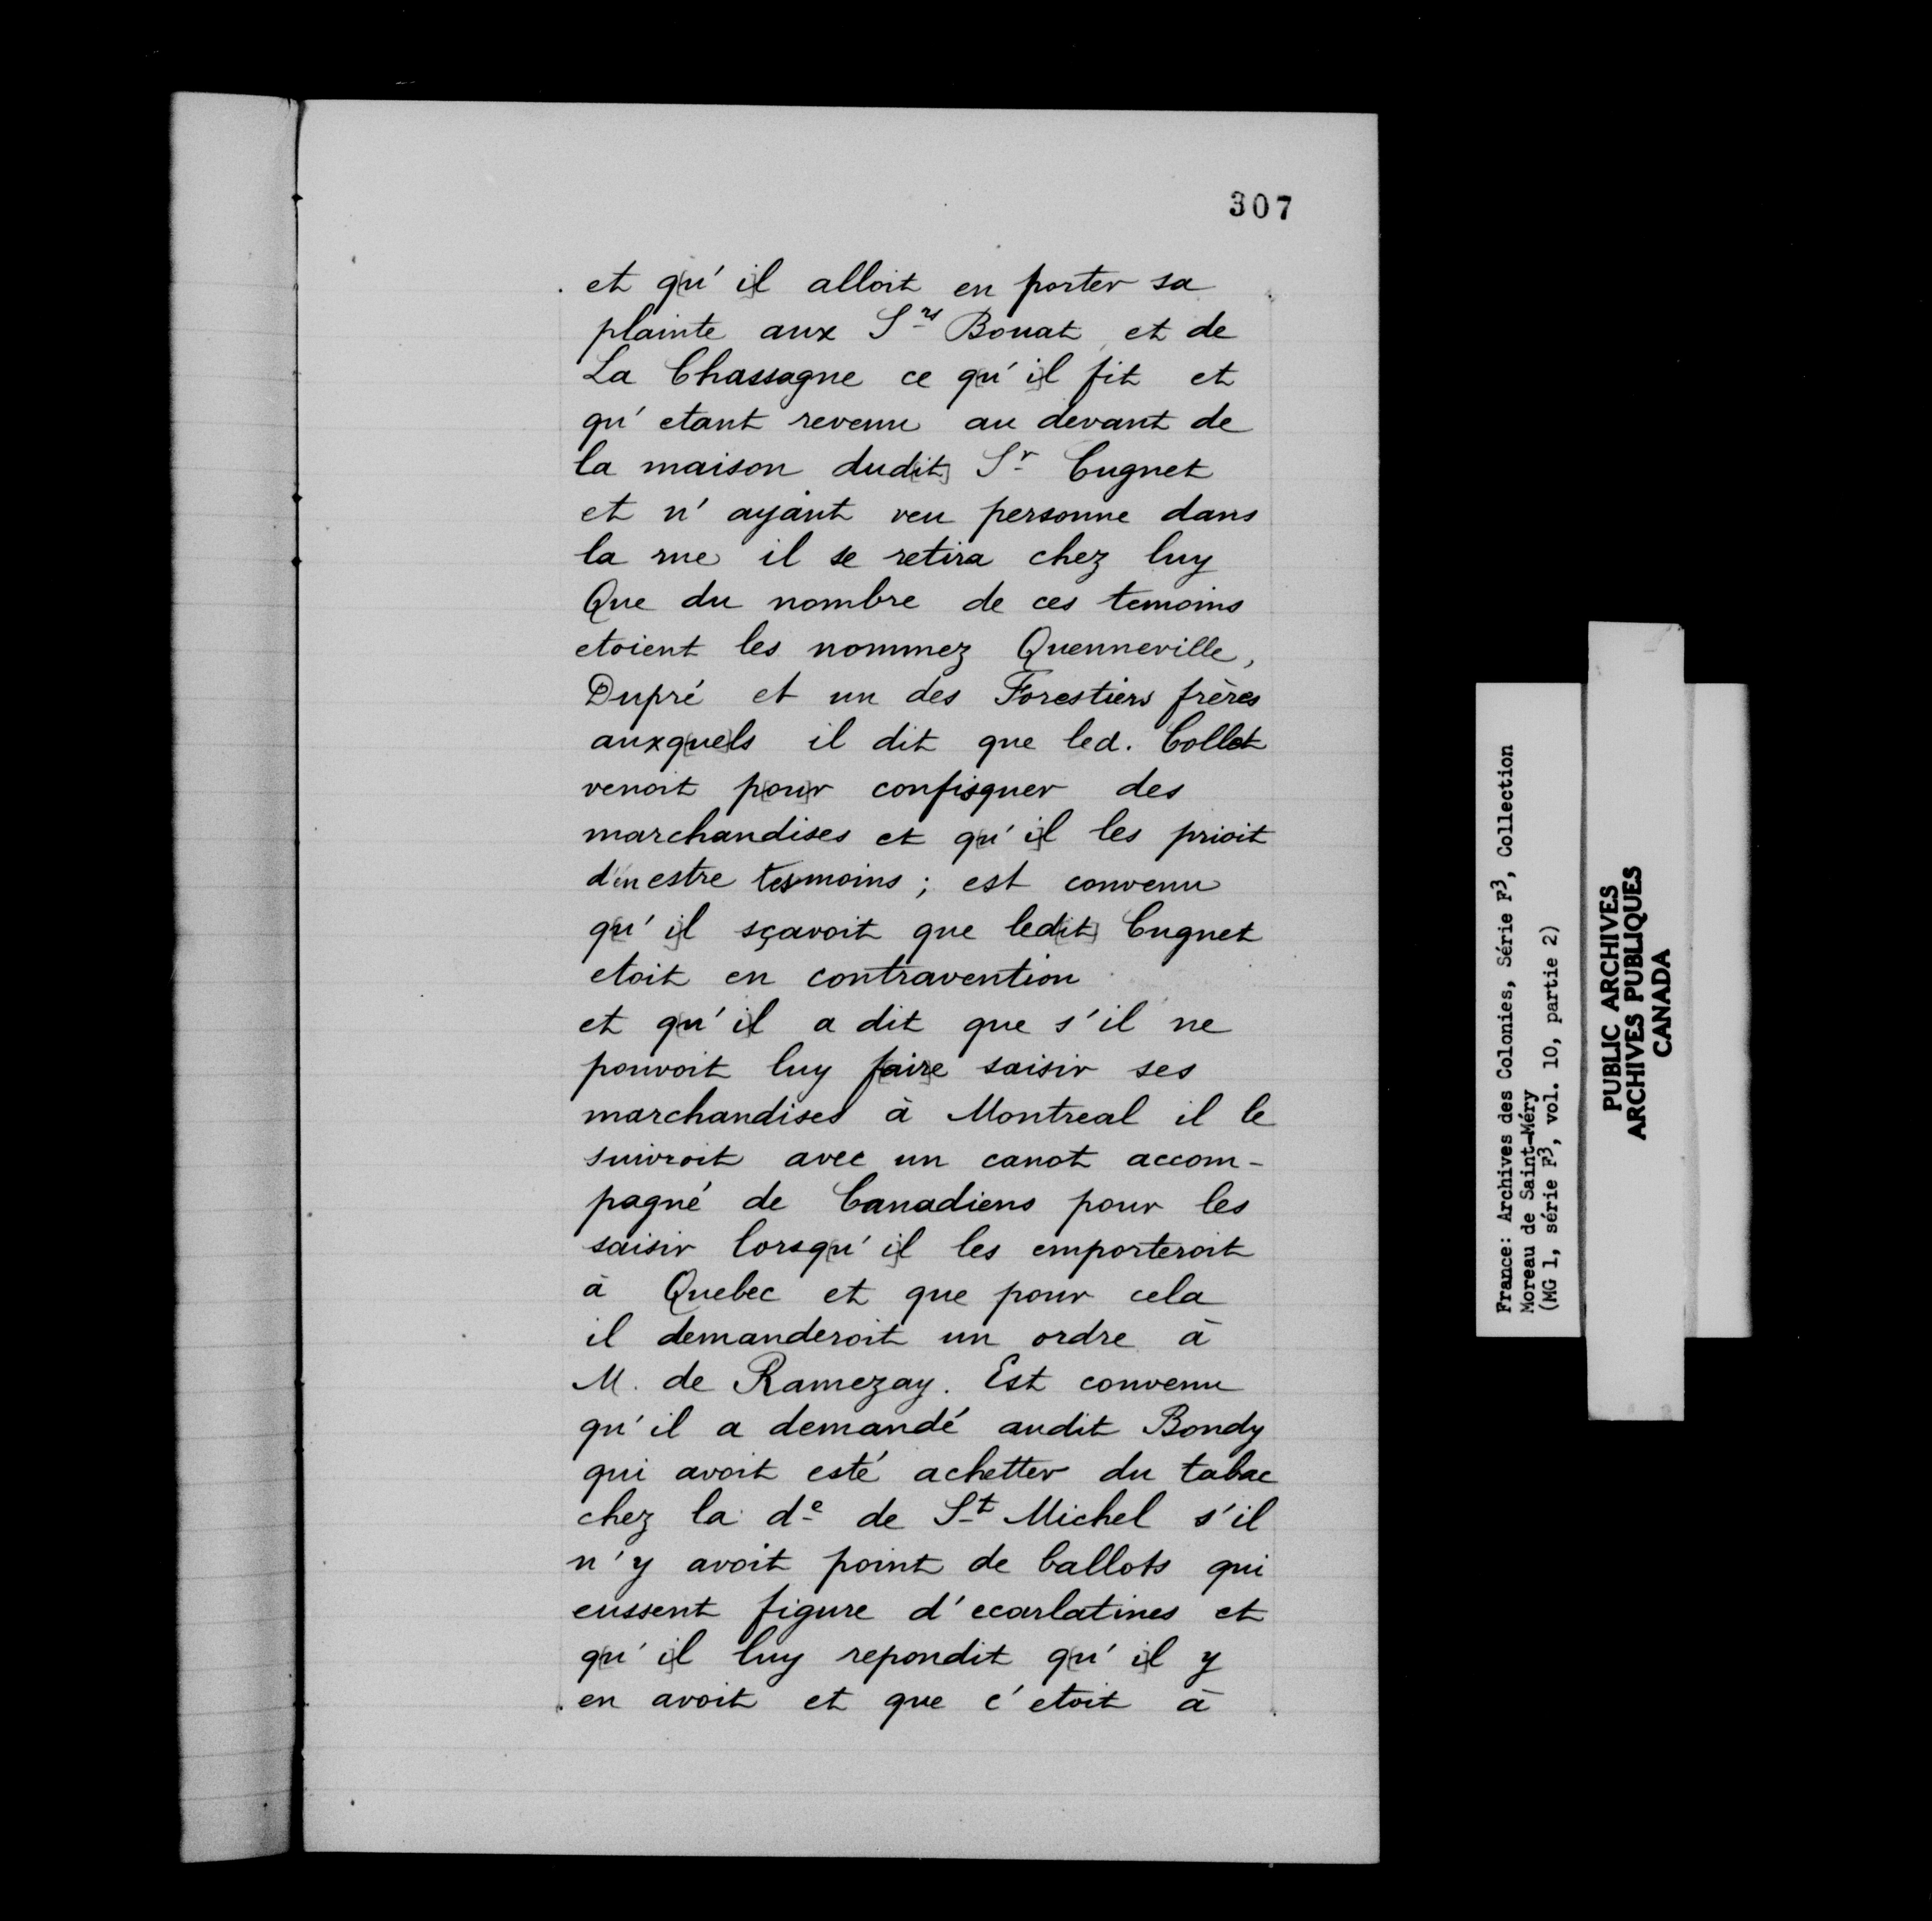 307
et q[u' i]l alloit en porter sa
plainte aux Srs Bouat et de
La Chassagne ce q[u' i]l fit et
qu' etant revenu au devant de
la maison dud[it] Sr Cugnet
et n' ayant veu personne dans
la rue il se retira chez luy
Que du nombre de ces temoins
etoient les nommez Quenneville,
Dupré et un des Forestiers frères
auxq[ue]ls il dit que led. Collet
venoit p[ou]r confisquer des
marchandises et q[u' i]l les prioit
d'en estre tesmoins ; est convenu
q[u' i]l sçavoit que led[it] Cugnet
etoit en contravention
et q[u' i]l a dit que s'il ne
pouvoit luy f[air]e saisir ses
marchandises à Montreal il le
suivroit avec un canot accom-
pagné de Canadiens pour les
saisir lorsq[u' i]l les emporteroit
à Quebec et que pour cela
il demanderoit un ordre à
M. de Ramezay. Est convenu
qu'il a demandé audit Bondy
qui avoit esté achetter du tabac
chez la de de St Michel s'il
n'y avoit point de ballots qui
eussent figure d'ecarlatines et
q[u' i]l luy repondit q[u' i]l y
en avoit et que c'etoit à
France: Archives des Colonies, Série F3, Collection
Moreau de Saint-Méry
(MG 1, série F3, vol. 10, partie 2)
PUBLIC ARCHIVES
ARCHIVES PUBLIQUES
CANADA